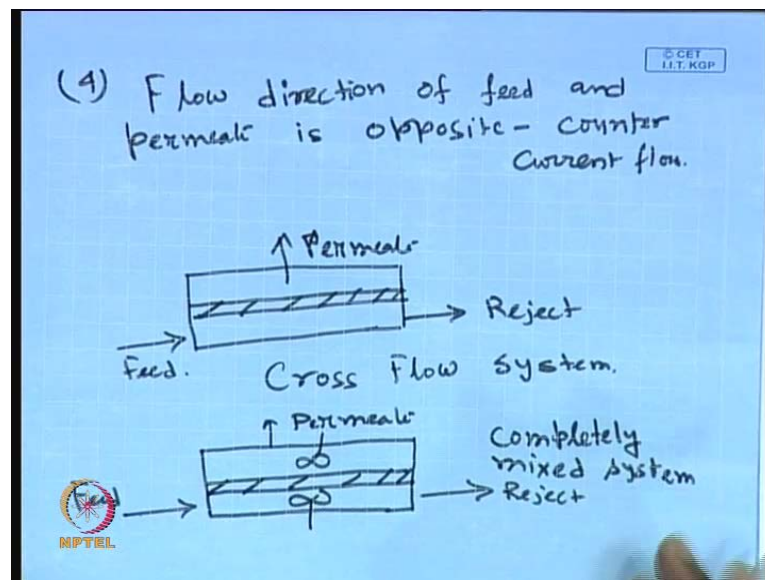 © CET
I.I.T. KGP
(4) Flow direction of feed and
permeate is opposite - counter
current flow.
Permeate
Reject
Feed.
Cross Flow system.
Permeate
Completely
mixed system
Feed
Reject
NPTEL